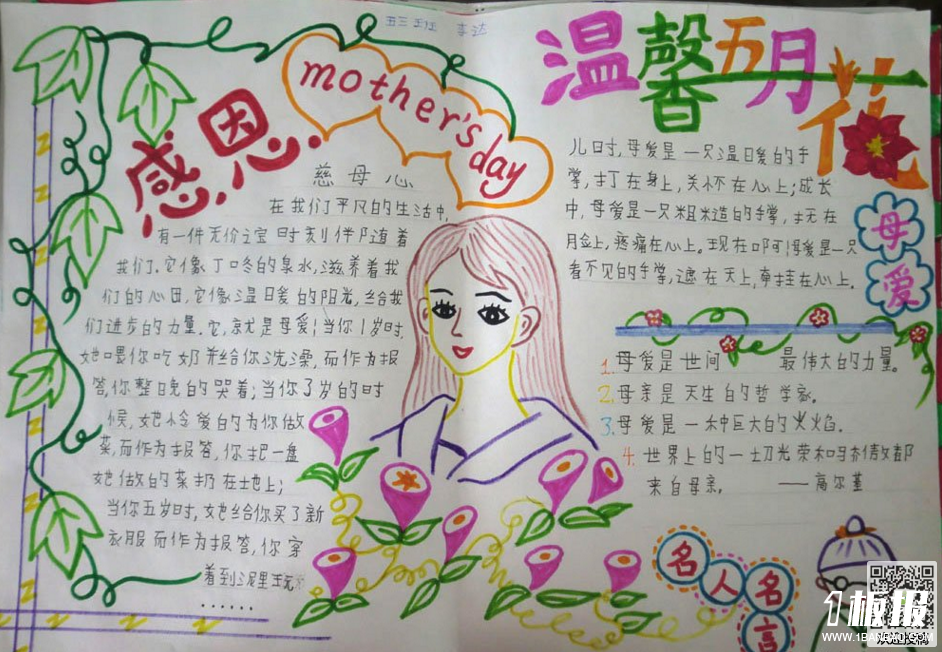 五三班 李达
感恩
mother's day
慈母心
在我们平凡的生活中,
有一件无价之宝时刻伴随着
我们。它像丁冬的泉水,滋养着我
们的心田,它像温暖的阳光,给我
们进步的力量。它,就是母爱!当你1岁时,
她喂你吃奶并给你洗澡,而作为报
答,你整晚的哭着;当你了岁的时
候,她怜爱的为你做
菜,而作为报答,你把一盘
她做的菜扔在地上;
当你五岁时,她给你买了新
衣服而作为报答,你穿
着到泥里玩
......
温馨五月花
儿时,母爱是一只温暖的手
掌,打在身上,关怀在心上;成长
中,母爱是一只粗糙的手掌,抚在
脸上,疼痛在心上。现在啊!母爱是一只
看不见的手掌,遮在天上,牵挂在心上。
母爱
1.母爱是世间 最伟大的力量。
2.母亲是天生的哲学家。
3.母爱是一种巨大的火焰。
4.世界上的一切光荣和骄傲都
来自母亲。 ——高尔基
名人名言
1板报
WWW.1BANBAO.COM